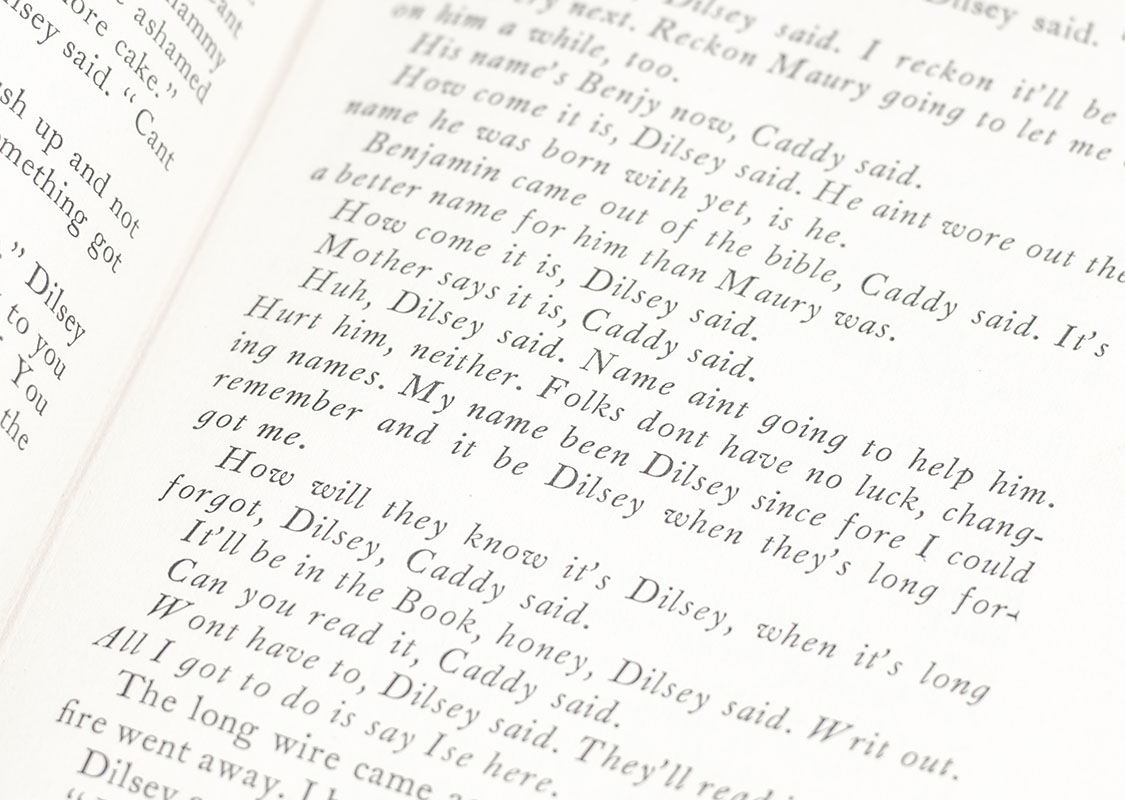 eant
hammy
ashamed
ore cake.”
lsey said. “Cant
sh up and not
mething got
” Dilsey
to you
You
the
Dilsey said.
Dilsey said. I reckon it'll be
ry next. Reckon Maury going to let me
on him a while, too.
His name's Benjy now, Caddy said.
How come it is, Dilsey said. He aint wore out the
name he was born with yet, is he.
Benjamin came out of the bible, Caddy said. It's
a better name for him than Maury was.
How come it is, Dilsey said.
Mother says it is, Caddy said.
Huh, Dilsey said. Name aint going to help him.
Hurt him, neither. Folks dont have no luck, chang-
ing names. My name been Dilsey since fore I could
remember and it be Dilsey when they's long for-
got me.
How will they know it's Dilsey, when it's long
forgot, Dilsey, Caddy said.
It'll be in the Book, honey, Dilsey said. Writ out.
Can you read it, Caddy said.
Wont have to, Dilsey said. They'll read
All I got to do is say Ise here.
The long wire came
fire went away. I
Dilsey